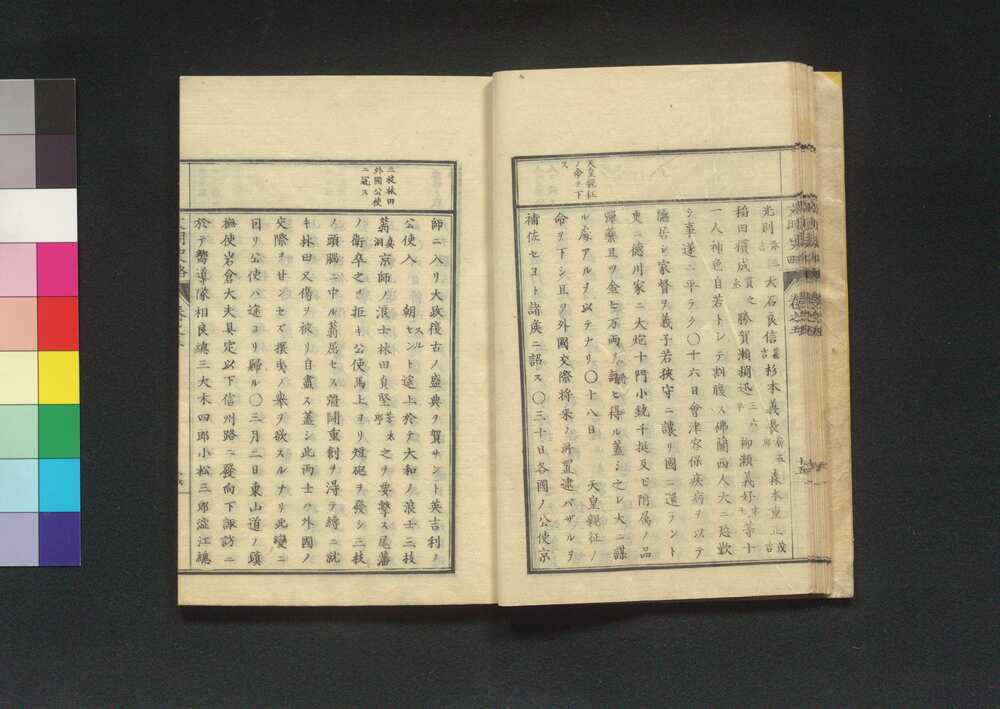 天皇親征
ノ命ヲ下
ス
光則 大石良信 杉本義長 森本重正
稲田積成 之 勝賀瀬 迅 六 柳瀬義好 等十
一人神色自若トシテ割腹ス佛蘭西人大ニ恐歎
シ事遂ニ平ラク〇十六日會津容保疾病ヲ以テ
隠居シ家督ヲ義子若狭守ニ譲リ國ニ還ラント
更ニ徳川家ニ大炮十門小銃千挺及ビ附属ノ品
弾藥且ツ金七万両ヲ請ヒ得ル蓋シ之レ大ニ謀
ル處アルヲ以テナリ〇十八日 天皇親征ノ
命ヲ下シ且ツ外國交際将来ノ所置逮バザルヲ
補佐セヨト諸侯ニ詔ス〇三十日各國ノ公使京
三枝林田
外國公使
ニ冦ス
師ニ入リ大政復古ノ盛典ヲ賀サント英吉利ノ
公使入 朝セントスル途上於テ大和ノ浪士三枝
蓊 京師ノ浪士林田貞堅 之ヲ要撃ス尾藩
ノ衛卒之ヲ拒キ公使馬上ヨリ短砲ヲ發シ三枝
ノ頭腦ニ中ル蓊屈セス獲闘重創ヲ得テ縛ニ就
キ林田又傷ヲ被リ自盡ス蓋シ此両士ハ外國ノ
交際ヲ甘ンセズ攘夷ノ舉ヲ欲スルナリ此變ニ
因リ公使ハ途ヨリ歸ル〇三月二日東山道ノ鎮
撫使岩倉大夫具定以下信州路ニ發向下諏訪ニ
於テ嚮導隊相良總三大木四郎小松三郎澁江總